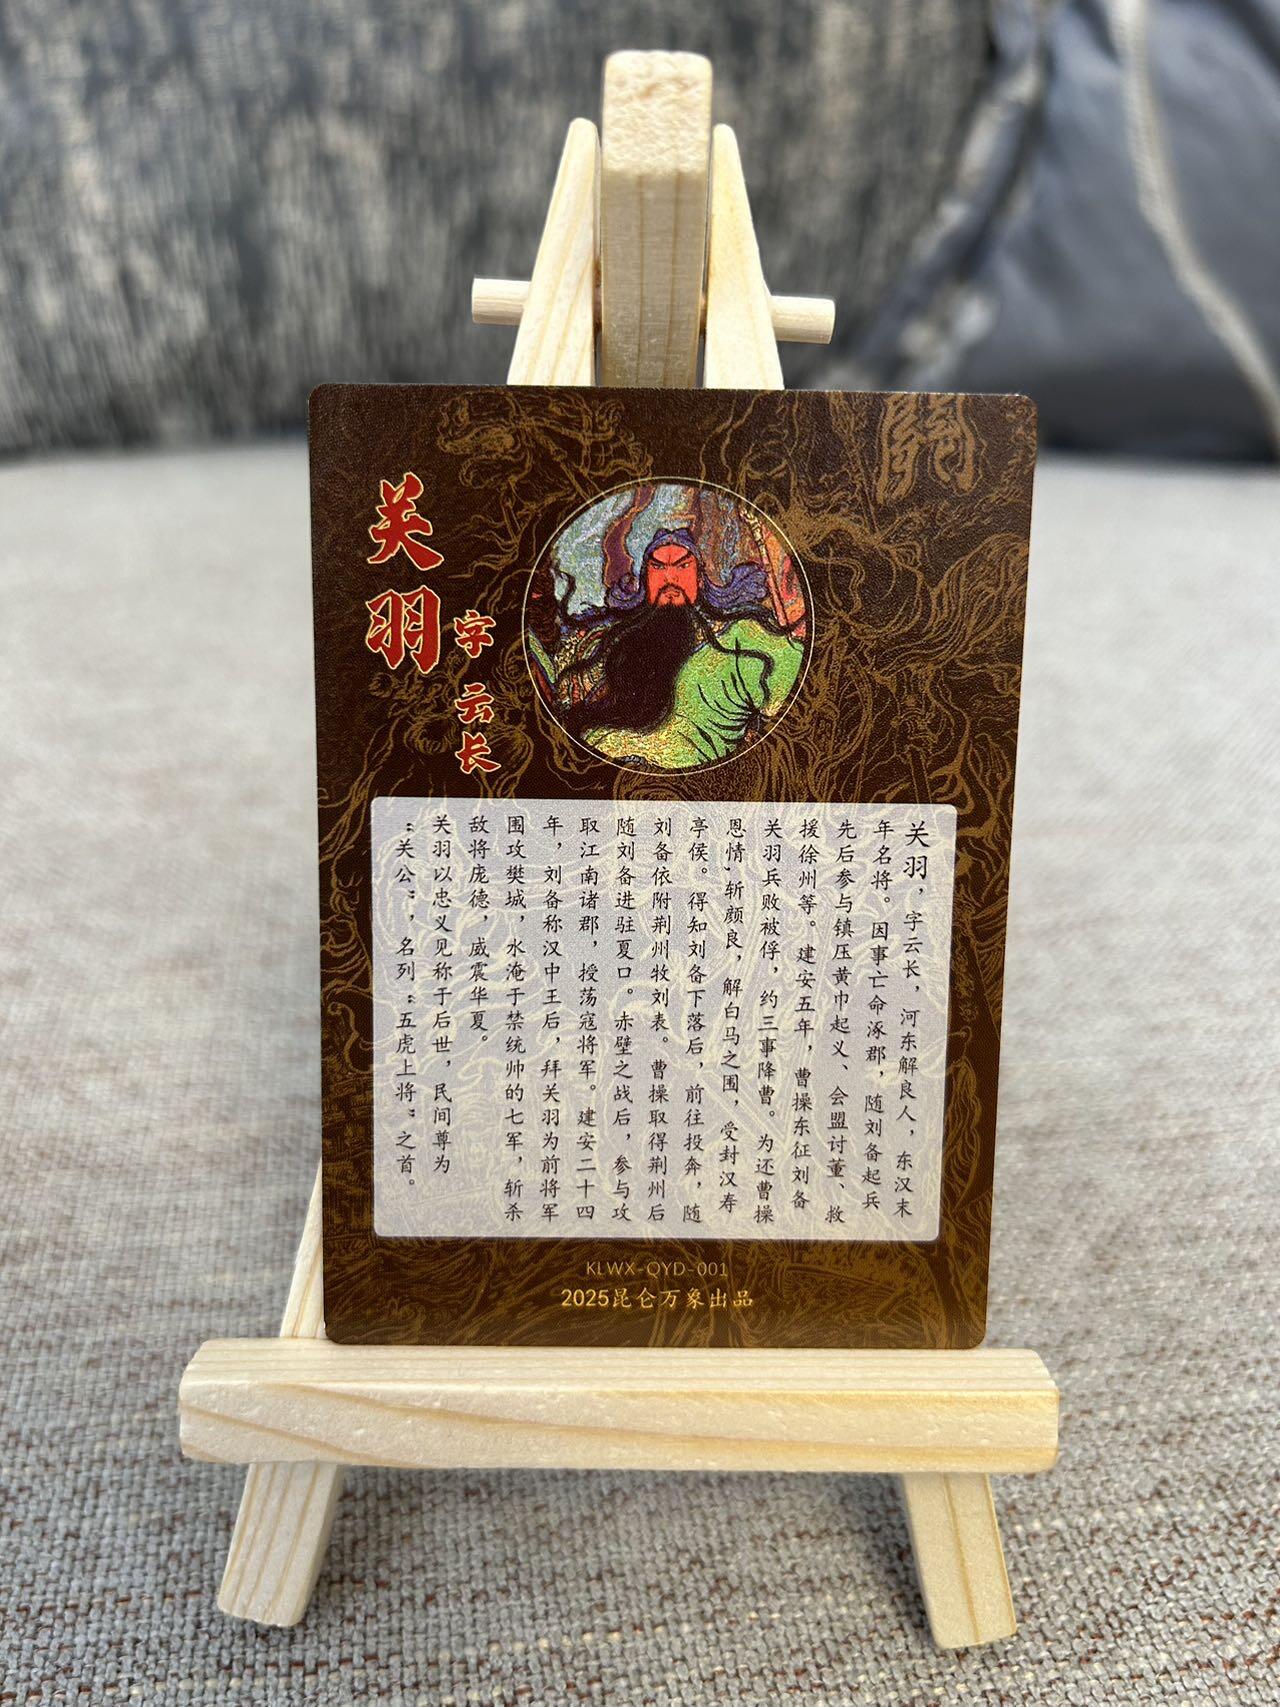 關
关羽
字 云长
关羽，字云长，河东解良人，东汉末
年名将。因事亡命涿郡，随刘备起兵
先后参与镇压黄巾起义、会盟讨董、救
援徐州等。建安五年，曹操东征刘备
关羽兵败被俘，约三事降曹。为还曹操
恩情，斩颜良，解白马之围，受封汉寿
亭侯。得知刘备下落后，前往投奔，随
刘备依附荆州牧刘表。曹操取得荆州后
随刘备进驻夏口。赤壁之战后，参与攻
取江南诸郡，授荡寇将军。建安二十四
年，刘备称汉中王后，拜关羽为前将军
围攻樊城，水淹于禁统帅的七军，斩杀
敌将庞德，威震华夏。
关羽以忠义见称于后世，民间尊为
“关公”，名列“五虎上将”之首。
KLWX-QYD-001
2025昆仑万象出品